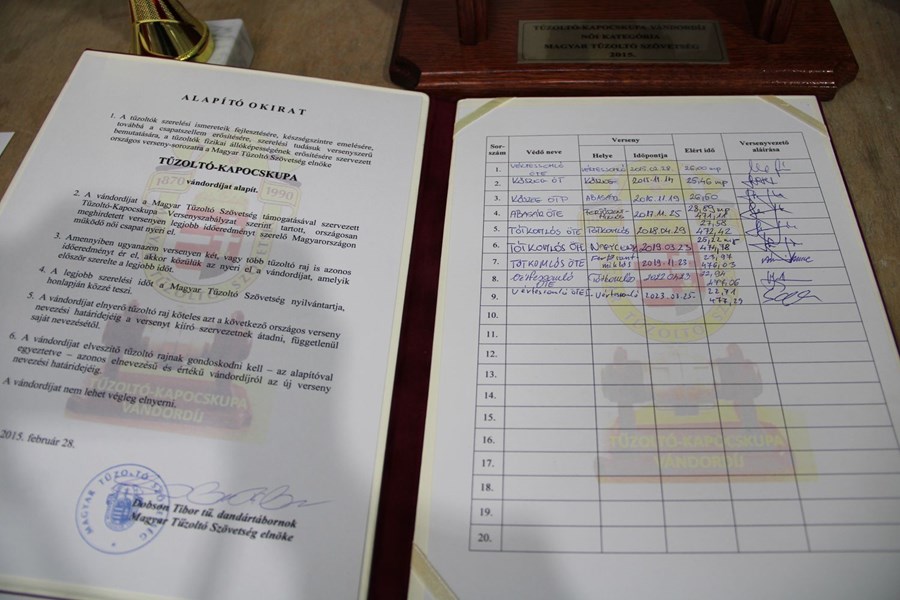 TŰZOLTÓ-KAPOCSKUPA VÁNDORDÍJ
NŐI KATEGÓRIA
MAGYAR TŰZOLTÓ SZÖVETSÉG
2015.
ALAPÍTÓ OKIRAT
1. A tűzoltók szerelési ismereteik fejlesztésére, készségszintre emelésére,
továbbá a csapatszellem erősítésére, szerelési tudásuk versenyszerű
bemutatására, a tűzoltók fizikai állóképességének erősítésére szervezett
országos verseny-sorozatra a Magyar Tűzoltó Szövetség elnöke
TŰZOLTÓ-KAPOCSKUPA
vándordíjat alapít.
2. A vándordíjat a Magyar Tűzoltó Szövetség támogatásával szervezett
Tűzoltó-Kapocskupa Versenyszabályzat szerint tartott, országosan
meghirdetett versenyen legjobb időeredményt szerelő Magyarországon
működő női csapat nyeri el.
3. Amennyiben ugyanazon versenyen két, vagy több tűzoltó raj is azonos
időeredményt ér el, akkor közülük az nyeri el a vándordíjat, amelyik
először szerelte a legjobb időt.
4. A legjobb szerelési időt a Magyar Tűzoltó Szövetség nyilvántartja,
honlapján közzé teszi.
5. A vándordíjat elnyerő tűzoltó raj köteles azt a következő országos verseny
nevezési határidejéig a versenyt kiíró szervezetnek átadni, függetlenül
saját nevezésétől.
6. A vándordíjat elveszítő tűzoltó rajnak gondoskodni kell – az alapítóval
egyeztetve – azonos elnevezésű és értékű vándordíjról az új verseny
nevezési határidejéig.
A vándordíjat nem lehet végleg elnyerni.
2015. február 28.
Dobson Tibor tű. dandártábornok
Magyar Tűzoltó Szövetség elnöke
MAGYAR TŰZOLTÓ SZÖVETSÉG
1870 1990
TŰZOLTÓ-KAPOCSKUPA
VÁNDORDÍJ
Sor-szám Védő neve Verseny Helye Időpontja Elért idő Versenyvezető aláírása
1. ÖTE 2015.02.28 26,00 mp
2. KŐSZEG ÖT KŐSZEG 2015.11.14 25,46 mp
3. KŐSZEG ÖTP ABASÁR
4. ABASÁR ÖTE 2017.11.25
5. TÓTKOMLÓS ÖTE TÓTKOMLÓS 2018.04.29 472,42
6. TÓTKOMLÓS ÖTE 2019.03.23
7. TÓTKOMLÓS ÖTE 2019.11.23
8. ÖTE Tótkomlós
9. Vértessomló ÖTE 2023.03.25 22,71
10.
11.
12.
13.
14.
15.
16.
17.
18.
19.
20.
TŰZOLTÓ-KAPOCSKUPA
VÁNDORDÍJ